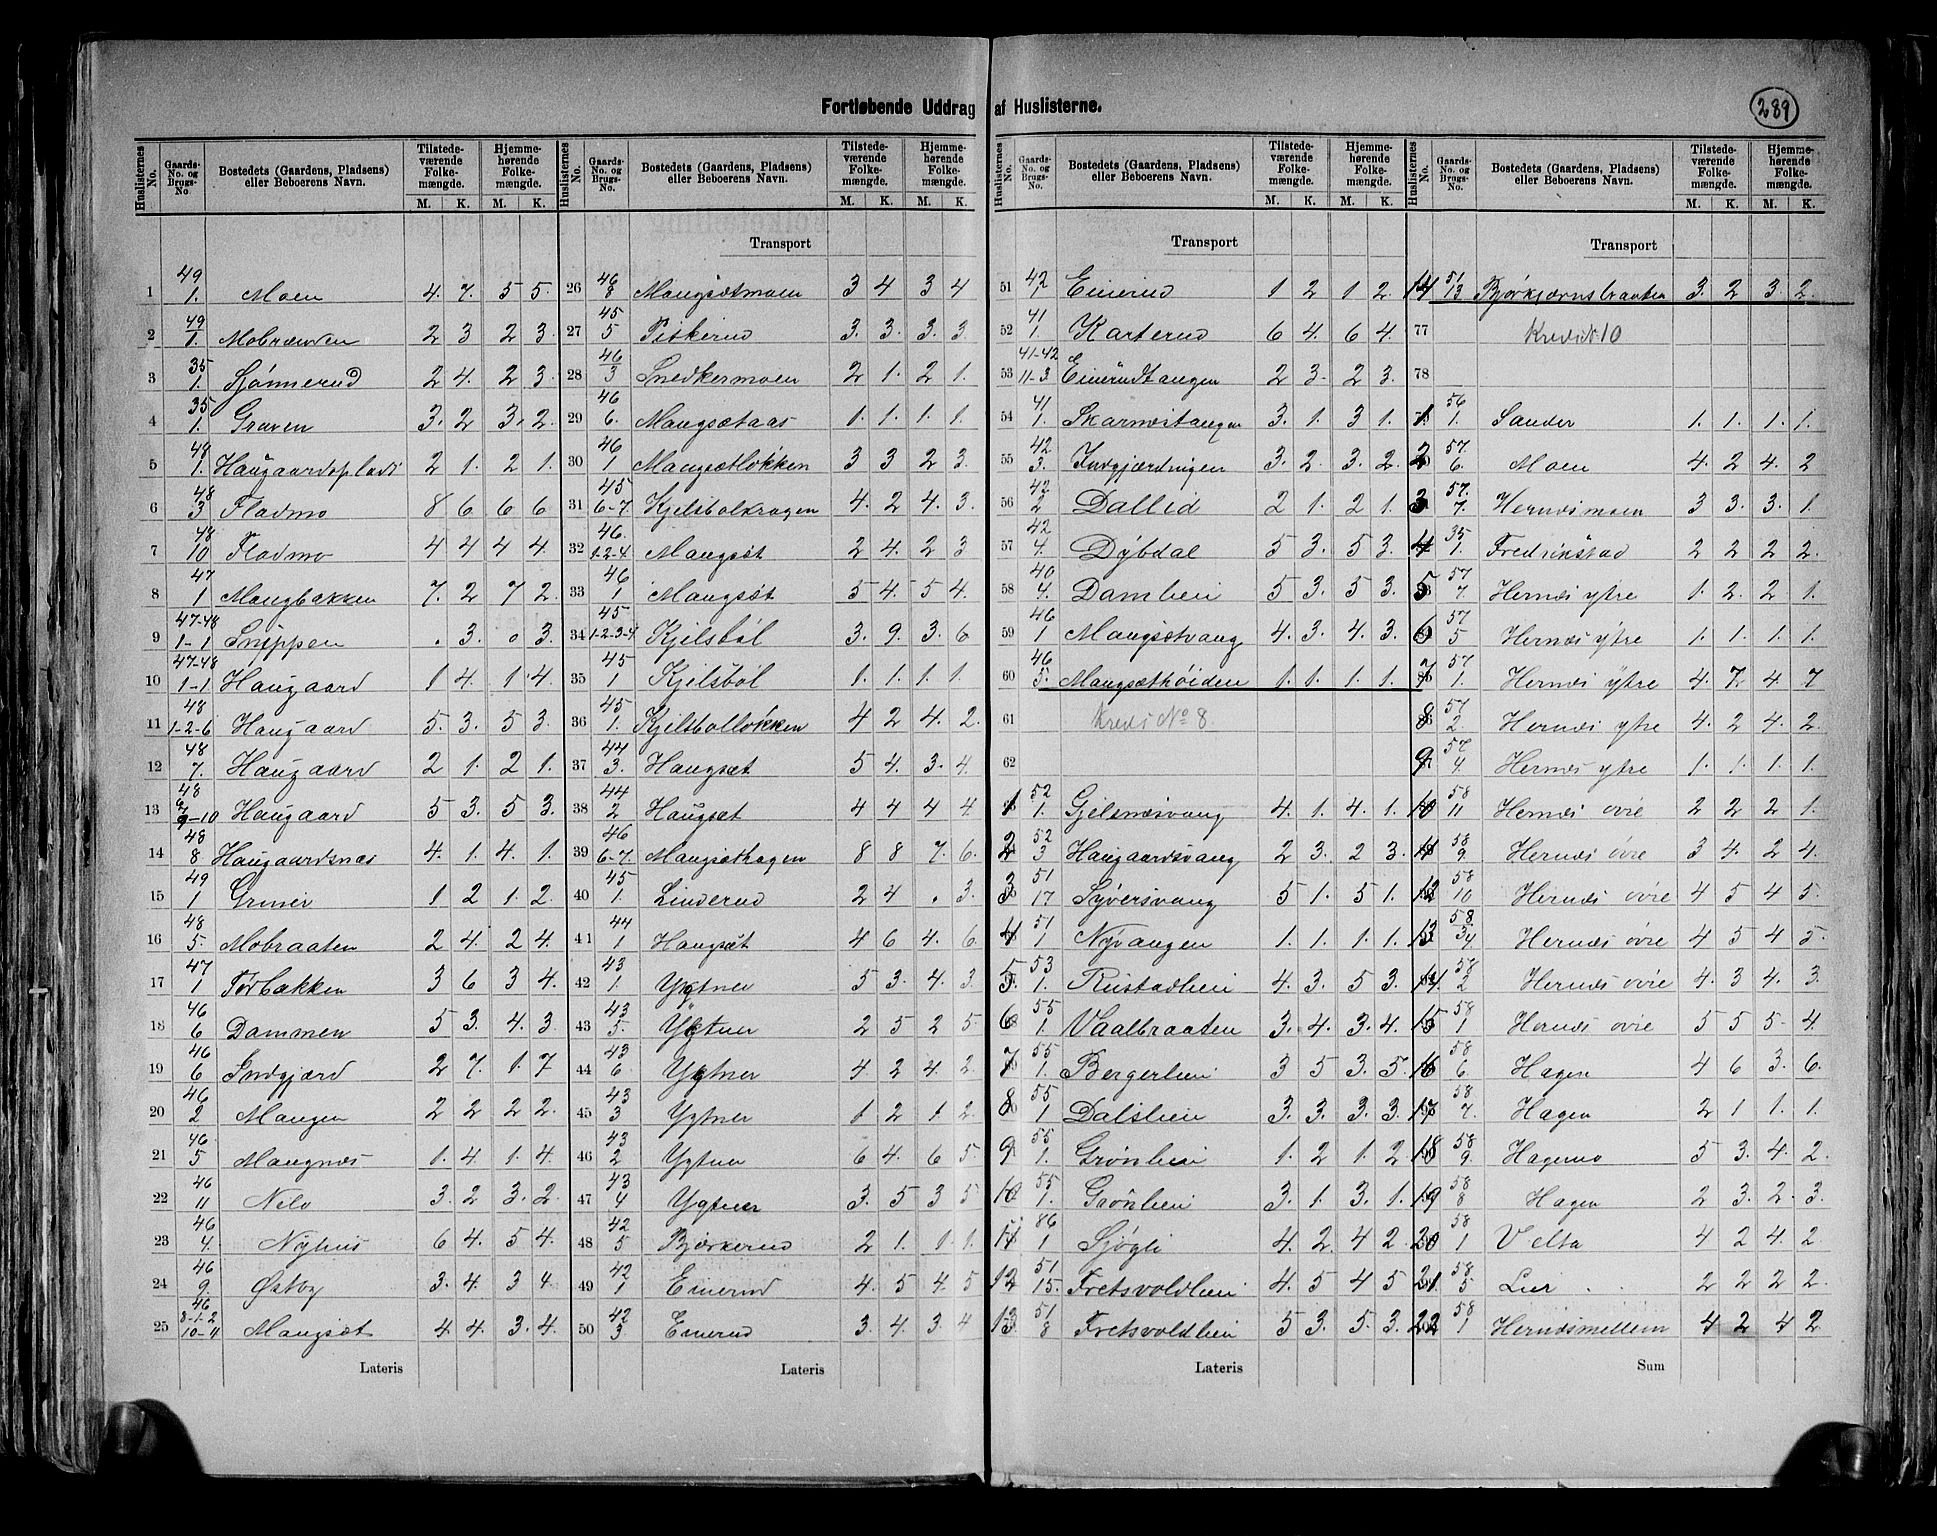 Fortløbende Uddrag af Huslisterne.
289
Huslisternes No. Gaards-No. og Brugs-No. Bostedets (Gaardens, Pladsens) eller Beboerens Navn. Tilstede-værende Folke-mængde. M. K. Hjemme-hørende Folke-mængde. M. K.
1 49/1. Moen 4. 7. 5 5.
2 49/1. Mobrænden 2 3 2 3.
3 35/1. Sjønnerud 2 4. 2 3.
4 35/1. Graven 3. 2 3. 2.
5 48/1. Haugaardsplads 2 1. 2 1.
6 48/3 Fladmo 8 6 6 6
7 48/10 Fladmo 4 4 4 4.
8 47/1 Mangbakken 7. 2 7 2.
9 47-48/1-1 Snippen . 3. . 3.
10 47-48/1-1 Haugaard 1 4. 1. 4.
11 48/1-2-6 Haugaard 5. 3. 5 3.
12 48/7. Haugaard 2 1. 2 1.
13 48/9-10 Haugaard 5 3. 5 3.
14 48/8 Haugaardsnæs 4. 1. 4. 1.
15 49/1 Griner 1 2 1. 2.
16 48/5. Mobraaten 2 4. 2 4.
17 47/1 Torbakken 3 6 3 4.
18 46/6 Dammen 5 3. 4. 3
19 46/6 Indgjærd 2 7. 1. 7
20 46/2 Mangen 2 2 2 2.
21 46/5 Mangnæs 1. 4. 1. 4.
22 46/11 Nilo 3. 2 3. 2.
23 46/4. Nyhus 6 4. 5 4.
24 46/9. Østby 3. 4. 3 4.
25 46/8-1-2 10-4 Mangsæt 4 4. 3. 4.
Lateris
Transport
26 46/8 Mangsætmoen 3 4 3 4
27 45/5 Piskerud 3. 3. 3. 3
28 46/3 Snedkermoen 2 1. 2 1.
29 46/6. Mangsætaas 1. 1. 1. 1.
30 46/1 Mangsætløkken 3 3 2 3.
31 45/6-7. Kjelsbolkragen 4. 2 4. 3.
32 46./1-2-4. Mangsæt 2 4. 2 3
33 46/1 Mangsæt 5 4. 5 4.
34 45/1-2-3-4. Kjelsbøl 3. 9. 3. 6
35 45/1 Kjelsbøl 1. 1. 1. 1.
36 45/1. Kjelsbolløkken 4 2 4. 2.
37 44/3. Haugsæt 5 4. 3. 4.
38 44/2 Haugsæt 4 4 4 4.
39 46/6-7. Mangsæthagen 8 8 7. 6.
40 45/1. Linderud 2 4 . 3.
41 44/1 Haugsæt 4 6 4. 6.
42 43/1. Ygtner 5 3. 4. 3.
43 43/5. Ygtner 2 5 2 5
44 43/6. Ygtner 4 2 4. 2
45 43/3 Ygtner 1 2 1. 2.
46 43/2 Ygtner 6 4. 6 5
47 43/4 Ygtner 3. 5 3 5
48 42/5 Bjerkerud 2 1. 1. 1.
49 42/1 Einerud 4. 5 4. 5
50 42/3 Einerud 3. 4. 3. 4
Lateris
Transport
51 42/1 Einerud 1 2 1 2.
52 41/1. Karterud 6 4. 6 4.
53 41-42/11-3 Einerudtangen 2 3. 2 3.
54 41/1. Skarnestangen 3. 1. 3 1.
55 42/3. Indgjærdningen 3. 2. 3. 2.
56 42/2 Dallid 2 1. 2 1.
57 42/4. Dybdal 5 3. 5 3.
58 40/4. Damlien 5 3. 5 3.
59 46/1 Mangsætvang 4. 3. 4. 3.
60 46/3. Mangsæthøiden 1. 1. 1. 1.
61 Kreds No 8.
62
1 52/1. Gjelsnæsvang 4. 1. 4. 1.
2 52/3 Haugaardsvang 2 3. 2 3.
3 51/17 Syversvang 5 1. 5 1.
4 51/1 Nyvangen 1. 1. 1. 1.
5 53/1. Rustadlien 4. 3. 5 3.
6 55/1. Vaalbraaten 3. 4. 3. 4.
7 55/1. Bergerlien 3 5 3. 5.
8 55/1 Dalslien 3. 3. 3. 3.
9 55/1. Grønlien 1. 2 1. 2
10 55/1. Grønlien 3. 1. 3. 1.
11 86/1 Sjøgli 4. 2. 4 2.
12 51/15. Fretsvoldlien 4. 5 4 5
13 51/8 Fretsvoldlien 5 3. 5. 3
Lateris
Transport
14 51/13 Bjørkjernsbraaten 3. 2 3. 2.
77 Kreds N 10
78
1 56/1. Sander 1. 1. 1. 1.
2 57./6. Moen 4. 2 4. 2
3 57./7. Hernæsmoen 3 3. 3. 1.
4 35/1. Fredrikstad 2 2 2 2.
5 57/7. Hernæs ytre 1. 2. 2 1.
6 57/5 Hernæs ytre 1. 1. 1. 1.
7 57./1. Hernæs ytre 4. 7. 4. 7
8 57/2. Hernæs ytre 4. 2 4. 2.
9 57/4. Hernæs ytre 1. 1. 1. 1.
10 58/11 Hernæs øvre 2 2 2 1.
11 58/9. Hernæs øvre 3 4. 2 4.
12 58/10 Hernæs øvre 4 5 4 5.
13 58/3/4 Hernæs øvre 4 5 4 5.
14. 58/2 Hernæs øvre 4. 3 4. 3.
15 58/1 Hernæs øvre 5 5 5. 4.
16 58/6. Hagen 4 6 3. 6.
17 58/7. Hagen 2 1 1. 1.
18 58/9. Hagemo 5 3. 4. 2.
19 58/8 Hagen 2 3. 2. 3.
20 58/1 Velta 4 2 4. 2
21 58/5 Lier 2 2 2 2.
22 58/1 Hernæsmellem 4 2 4 2.
Sum